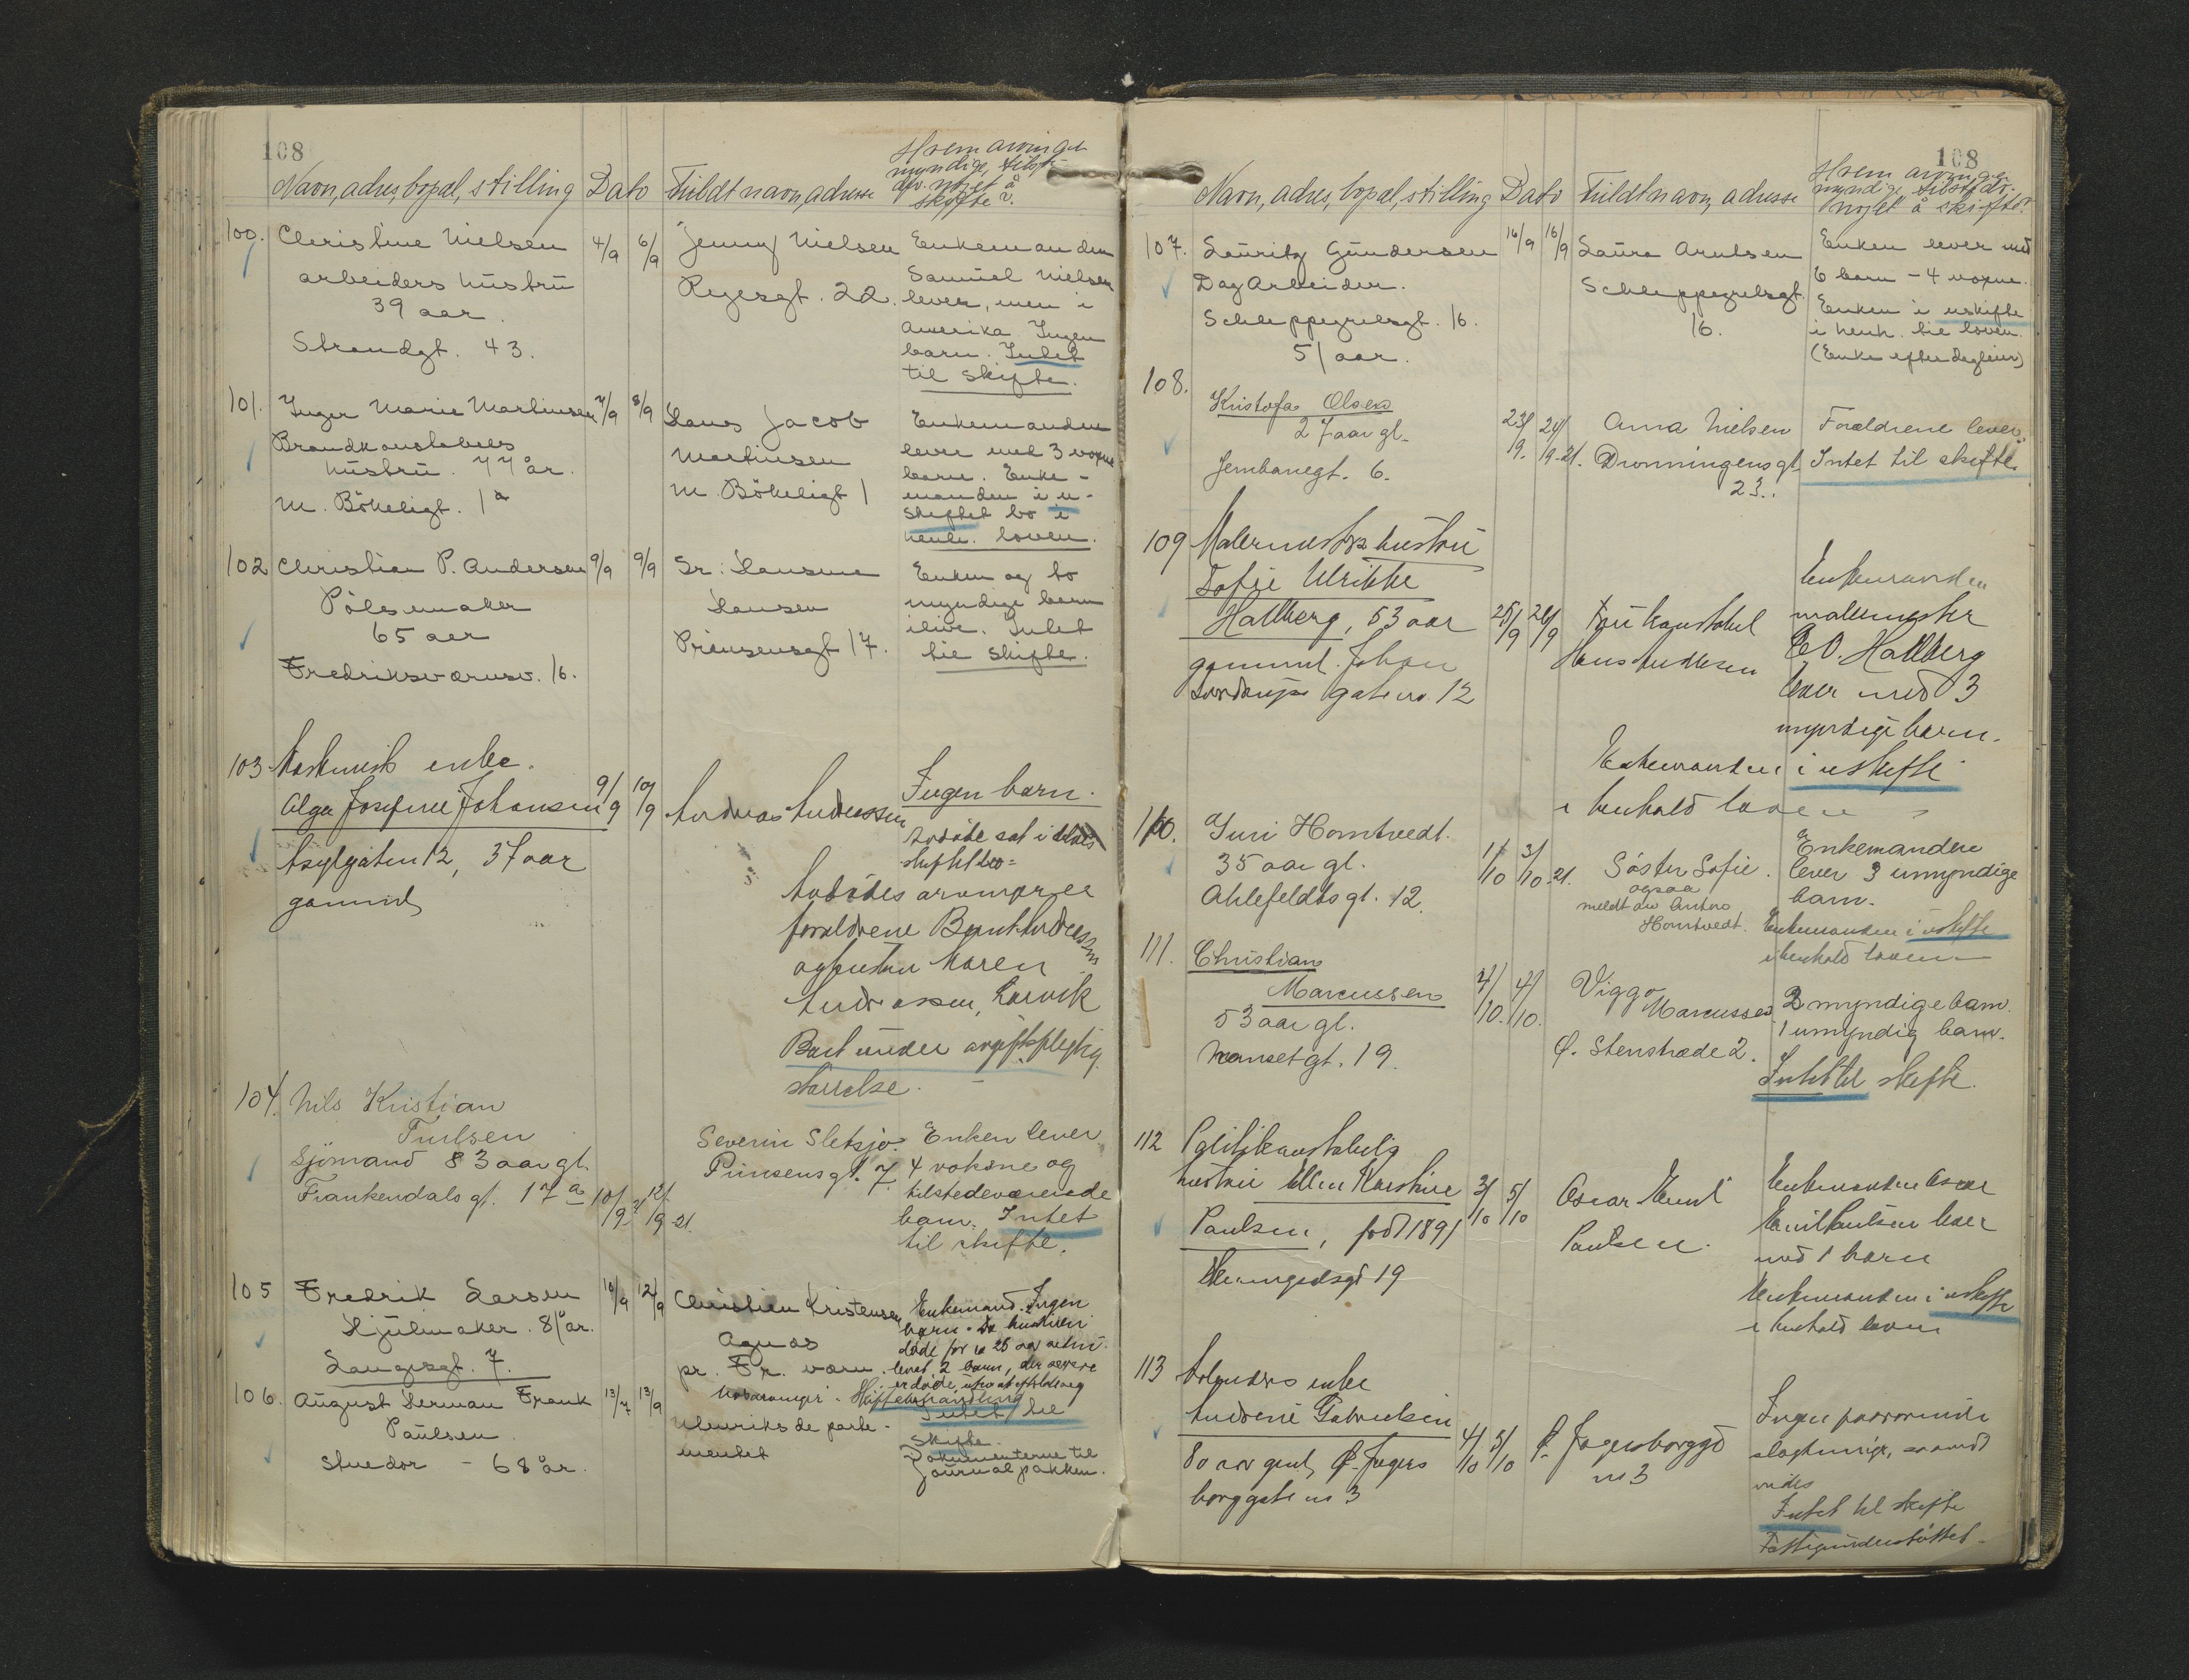 108
Navn, adres, bopæl, stilling
Dato
Fuldt navn, adresse
Hvem arvinger
myndige, tilste-
der. noget å
skifte?
100.
Christine Nielsen
arbeiders hustru
39 aar.
Strandgt. 43.
4/9
6/9
Jenny Nielsen
Rejesgt. 22.
Enkemanden
Samuel Nielsen
lever, men i
Amerika. Ingen
barn. Intet
til skifte.
101.
Inger Marie Martinsen
Brandkonstabels
hustru. 77 år.
M. Bökeligt. 1a
7/9
8/9
Hans Jacob
Martinsen
M. Bökeligt 1
Enkemanden
lever med 3 voxne
barn. Enke-
manden i u-
skiftet bo i
henh. loven.
102
Christian P. Andersen
Pölsemaker
65 aar
Fredriksværnsv. 16.
9/9
9/9
Sr: Hansine
Hansen
Prinsensgt 17.
Enken og to
myndige barn
ilive. Intet
til skifte.
103
enke.
Olga Josefine Johansen
Asylgaten 12, 37 aar
gammel
9/9
10/9
Andreas Andreassen
Ingen barn.
Avdöde sat i
skiftet bo=
Avdödes arvinger er
forældrene Bernt Andreassen
og hustru Maren
Andreassen, Larvik
Boet under avgiftspligtig
størrelse.
104.
Nils Kristian
Trulsen
Sjömand 83 aar gl.
Frankendalsgt. 17a
10/9
12/9 21.
Severin Sletsjø.
Prinsensgt. 7.
Enken lever
4 voksne og
tilstedeværende
barn. Intet
til skifte.
105
Fredrik Larsen
Hjulmaker. 81 år.
Langesgt. 7.
10/9
12/9
Christian Kristensen
Agnas
pr. Fr. værn.
Enkemand. Ingen
barn.
døde for ca 25 aar
2 barn, der senere
er døde,
106.
August Herman Frank
Paulsen
stuedor - 68 år.
13/9
13/9
Intet til
skifte.
Dokumenterne til
journalpakken.
108
Navn, adres, bopæl, stilling
Dato
Fuldt navn, adresse
Hvem arvinger
myndige, tilstede.
noget å skifte?
107.
Lauritz Gundersen
Dagarbeider.
Schleppegrelsgt. 16.
51 aar.
16/9
16/9
Laura Arntsen
Schleppegrelsgt.
16.
Enken lever med
6 barn - 4 voxne.
Enken i uskifte
i henh. til loven.
(Enke efter dagleier)
108.
Kristofa Olsen
27 aar gl.
Jernbanegt. 6.
23/9.
24/9-21.
Anna Nielsen
Dronningensgt.
23.
Forældrene lever.
Intet til skifte.
109
Malermesters hustru
Sofie Ulrikke
Hallberg, 53 aar
gammel. Johan
Sverdrups gate nr. 12
25/9
26/9
Fru konstabel
Hans Andersen
Enkemanden
malermester
C. O. Hallberg
lever med 3
myndige barn.
Enkemanden i uskifte
i henhold loven
110.
Guri Homtvedt.
35 aar gl.
Ahlefeldtsgt. 12.
1/10
3/10.21.
Søster Sofie.
ogsaa
meldt av Anters
Homtvedt.
Enkemanden
lever 3 umyndige
barn.
Enkemanden i uskifte
i henhold loven
111.
Christian
Marcussen
53 aar gl.
Nansetgt. 19.
4/10.
4/10.
Viggo
Marcussen
Ø. Stenstræde 2.
2 myndige barn.
1 umyndig barn.
Intet til skifte.
112
Politikonstabels
hustru Ellen Karstine
Paulsen, født 1891
19
3/10
5/10
Oscar Emil
Paulsen.
Enkemanden Oscar
Emil Paulsen lever
med 1 barn
Enkemanden i uskifte
i henhold loven
113
enke
Andrene Gabrielsen
80 aar gml, Ø. Jegers
borggate nr 3
4/10
5/10
Ø. Jegersborggt
nr 3
Ingen nærværende
slegtninge, saavidt
vides
Intet til skifte
Fattigunderstøttet